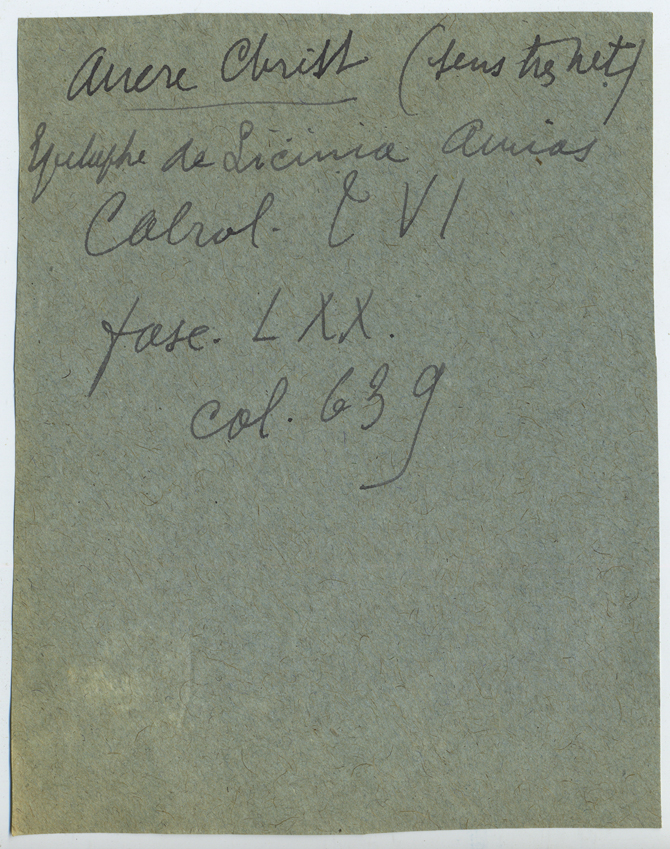 Ancre Christ (sens très net)
Epitaphe de Licinia Amias
Cabrol. T VI
fasc. LXX.
col. 639